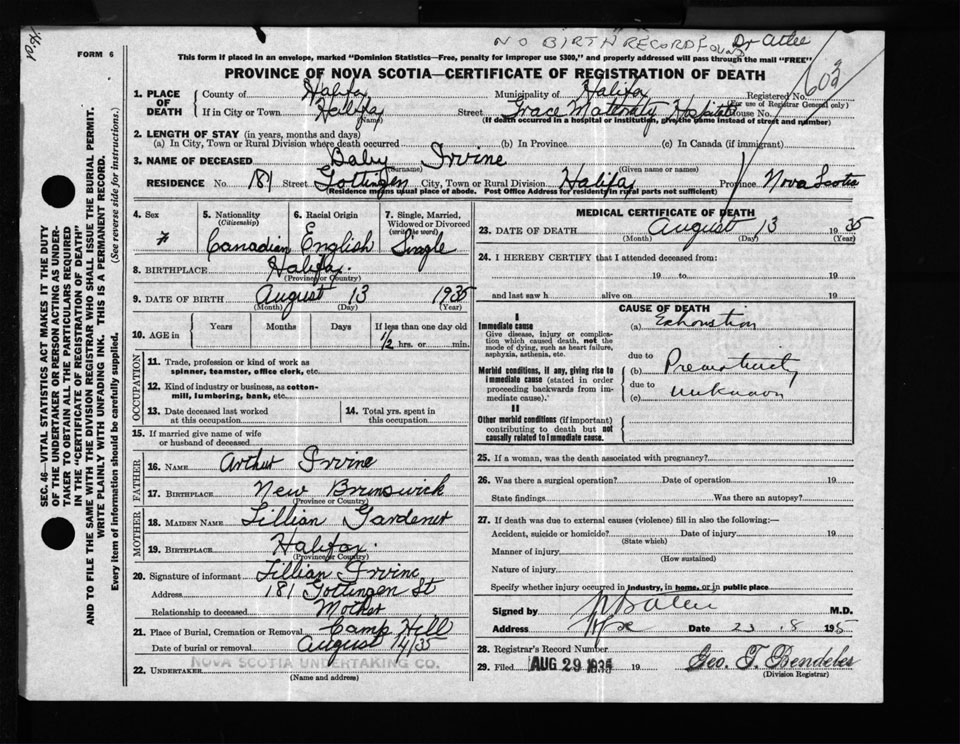 NO BIRTH RECORD FOUND Dr Atlee
FORM 6
This form if placed in an envelope, marked "Dominion Statistics—Free, penalty for improper use $300," and properly addressed will pass through the mail "FREE"
PROVINCE OF NOVA SCOTIA—CERTIFICATE OF REGISTRATION OF DEATH
603
1. PLACE OF DEATH County of Halifax Municipality of Halifax Registered No.
(For use of Registrar General only)
If in City or Town Halifax Street Grace Maternity Hospital House No.
(Name) (If death occurred in a hospital or institution, give the name instead of street and number)
2. LENGTH OF STAY (in years, months and days)
(a) In City, Town or Rural Division where death occurred (b) In Province (c) In Canada (if immigrant)
3. NAME OF DECEASED Baby Irvine
(Surname) (Given name or names)
RESIDENCE No. 181 Street Gottingen City, Town or Rural Division Halifax Province Nova Scotia
(Residence means usual place of abode. Post Office Address for residents in rural parts not sufficient)
4. Sex F
5. Nationality (Citizenship) Canadian
6. Racial Origin English
7. Single, Married, Widowed or Divorced (write the word) Single
8. BIRTHPLACE Halifax.
(Province or Country)
9. DATE OF BIRTH August 13 1935
(Month) (Day) (Year)
10. AGE in Years Months Days If less than one day old
1/2 hrs. or min.
OCCUPATION
11. Trade, profession or kind of work as spinner, teamster, office clerk, etc.
12. Kind of industry or business, as cotton-mill, lumbering, bank, etc.
13. Date deceased last worked at this occupation
14. Total yrs. spent in this occupation
15. If married give name of wife or husband of deceased
FATHER
16. NAME Arthur Irvine
17. BIRTHPLACE New Brunswick
(Province or Country)
MOTHER
18. MAIDEN NAME Lillian Gardener
19. BIRTHPLACE Halifax.
(Province or Country)
20. Signature of informant Lillian Irvine
Address 181 Gottingen St
Relationship to deceased Mother
21. Place of Burial, Cremation or Removal Camp Hill
Date of burial or removal August 14/35
22. UNDERTAKER NOVA SCOTIA UNDERTAKING CO.
(Name and address)
MEDICAL CERTIFICATE OF DEATH
23. DATE OF DEATH August 13 1935
(Month) (Day) (Year)
24. I HEREBY CERTIFY that I attended deceased from:
19 to 19
and last saw h alive on 19
CAUSE OF DEATH
I
Immediate cause
Give disease, injury or complication which caused death, not the mode of dying, such as heart failure, asphyxia, asthenia, etc.
(a) Exhaustion
due to
Morbid conditions, if any, giving rise to immediate cause (stated in order proceeding backwards from immediate cause).
(b) Prematurity
due to
(c) unknown
II
Other morbid conditions (if important) contributing to death but not causally related to immediate cause.
25. If a woman, was the death associated with pregnancy?
26. Was there a surgical operation? Date of operation 19
State findings Was there an autopsy?
27. If death was due to external causes (violence) fill in also the following:—
Accident, suicide or homicide? Date of injury 19
(State which)
Manner of injury
(How sustained)
Nature of injury
Specify whether injury occurred in industry, in home, or in public place
Signed by M.D.
Address Hfx Date 23.8 1935
28. Registrar's Record Number
29. Filed AUG 29 1935 19 Geo. T. Bendeler
(Division Registrar)
SEC. 46—VITAL STATISTICS ACT MAKES IT THE DUTY
OF THE UNDERTAKER OR PERSON ACTING AS UNDER-
TAKER TO OBTAIN ALL THE PARTICULARS REQUIRED
IN THE "CERTIFICATE OF REGISTRATION OF DEATH"
AND TO FILE THE SAME WITH THE DIVISION REGISTRAR WHO SHALL ISSUE THE BURIAL PERMIT.
WRITE PLAINLY WITH UNFADING INK. THIS IS A PERMANENT RECORD.
Every item of information should be carefully supplied. (See reverse side for instructions.)